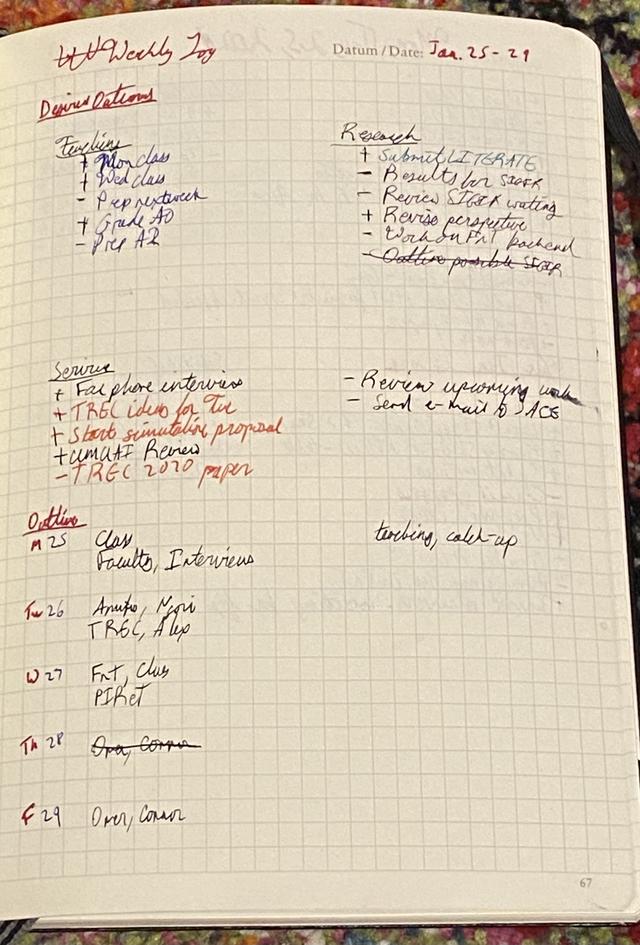 Weekly Log
Datum / Date: Jan. 25 - 29
Desired Outcomes
Teaching
+ Mon class
+ Wed class
- Prep next week
+ Grade A0
- Prep A2
Research
+ Submit LITERATE
- Results for SIGIR
- Review SIGIR writing
+ Revise perspective
- Work on FnT backend
- Outline possible SIGIR
Service
+ Fac phone interviews
+ TREC ideas for Tue
+ Start simulation proposal
+ UMUAI Review
- TREC 2020 paper
- Review upcoming
- Send e-mail to ACE
Outline
M 25 Class
Faculty, Interviews
teaching, catch-up
Tu 26
TREC, Alex
W 27 FnT, Class
PIReT
Th 28 Connor
F 29 Omer, Connor
67